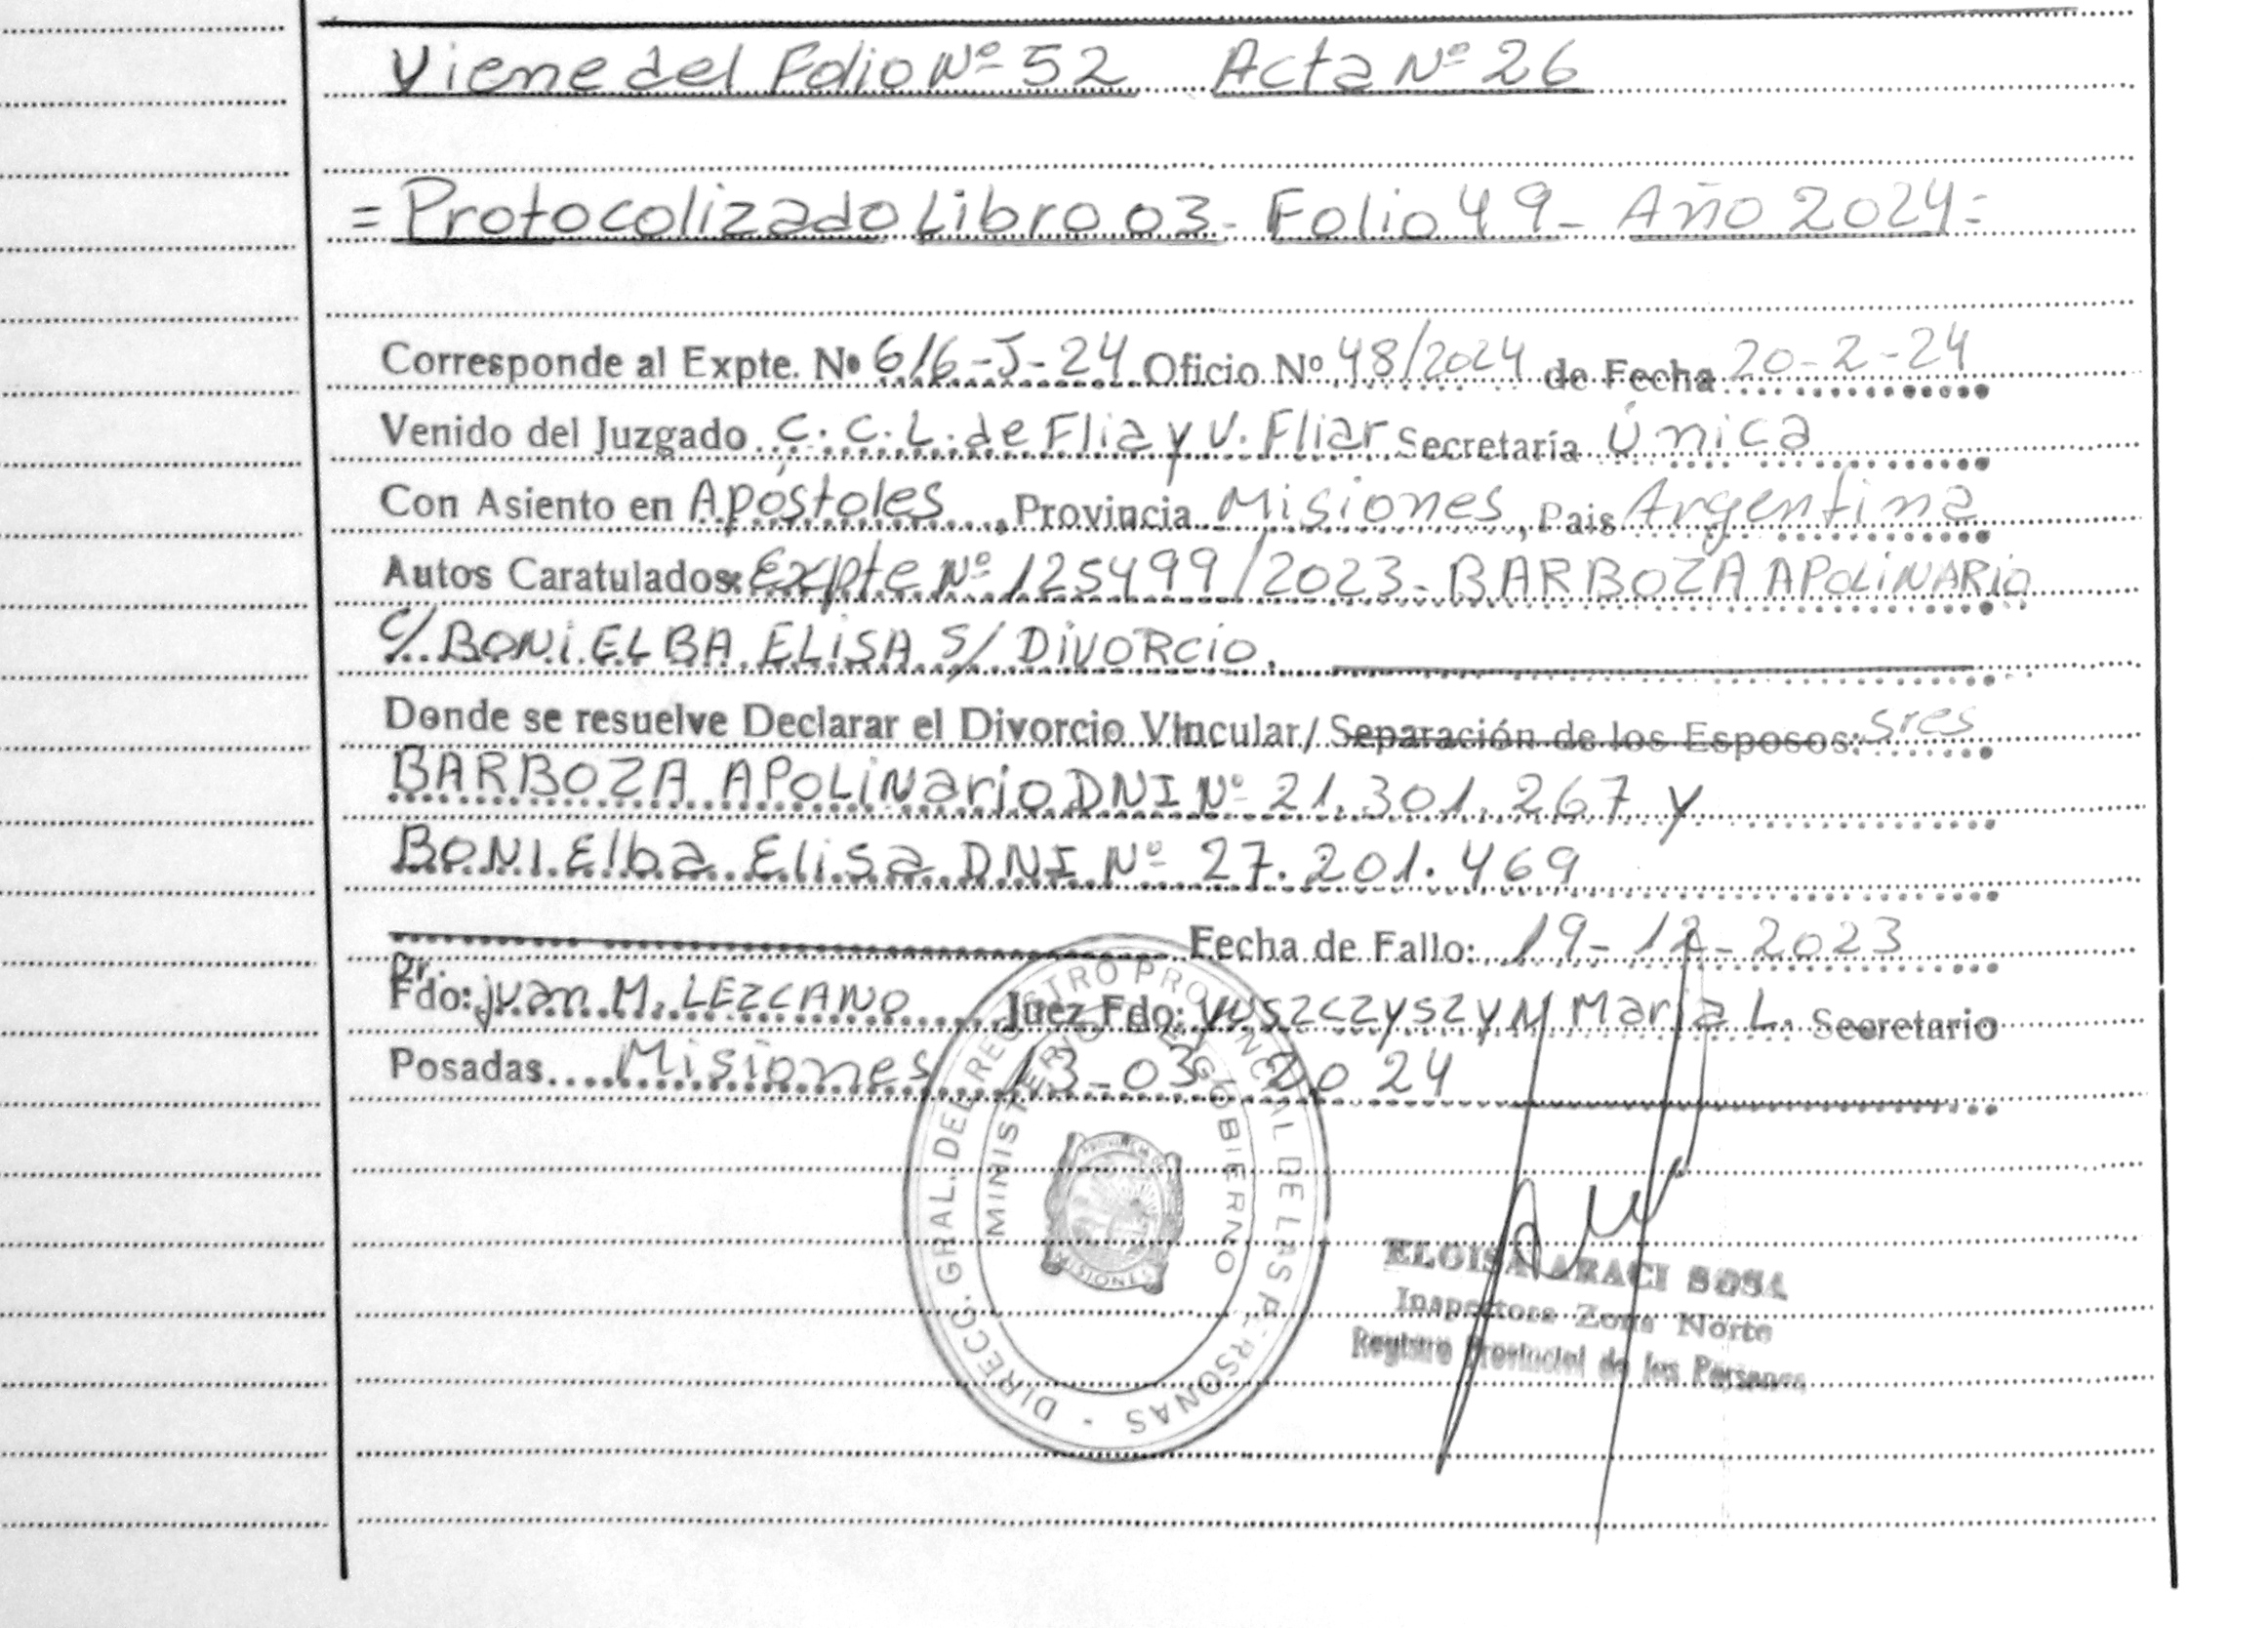 Viene del Folio Nº 52 Acta Nº 26
= Protocolizado Libro 03 - Folio 49 - Año 2024 =
Corresponde al Expte. Nº 616-J-24 Oficio Nº 48/2024 de Fecha 20-2-24
Venido del Juzgado C. C. L. de Flia y V. Fliar Secretaría Única
Con Asiento en Apóstoles, Provincia Misiones, Pais Argentina
Autos Caratulados: Expte Nº 125499/2023 - BARBOZA APOLINARIO
C/ BONI ELBA ELISA S/ DIVORCIO.
Donde se resuelve Declarar el Divorcio Vincular/ Separación de los Esposos: sres
BARBOZA APOLINario DNI Nº 21.301.267 y
BONI Elba Elisa DNI Nº 27.201.469
Fecha de Fallo: 19-12-2023
Dr.
Fdo: Juan M. LEZCANO Juez Fdo: YUSZCZYSZYN Maria L. Secretario
Posadas Misiones 13-03-2024
DIRECC. GRAL. DEL REGISTRO PROVINCIAL DE LAS PERSONAS -
MINISTERIO DE GOBIERNO
PROVINCIA DE
MISIONES
ELOISA ARACI SOSA
Inspectora Zona Norte
Registro Provincial de las Personas